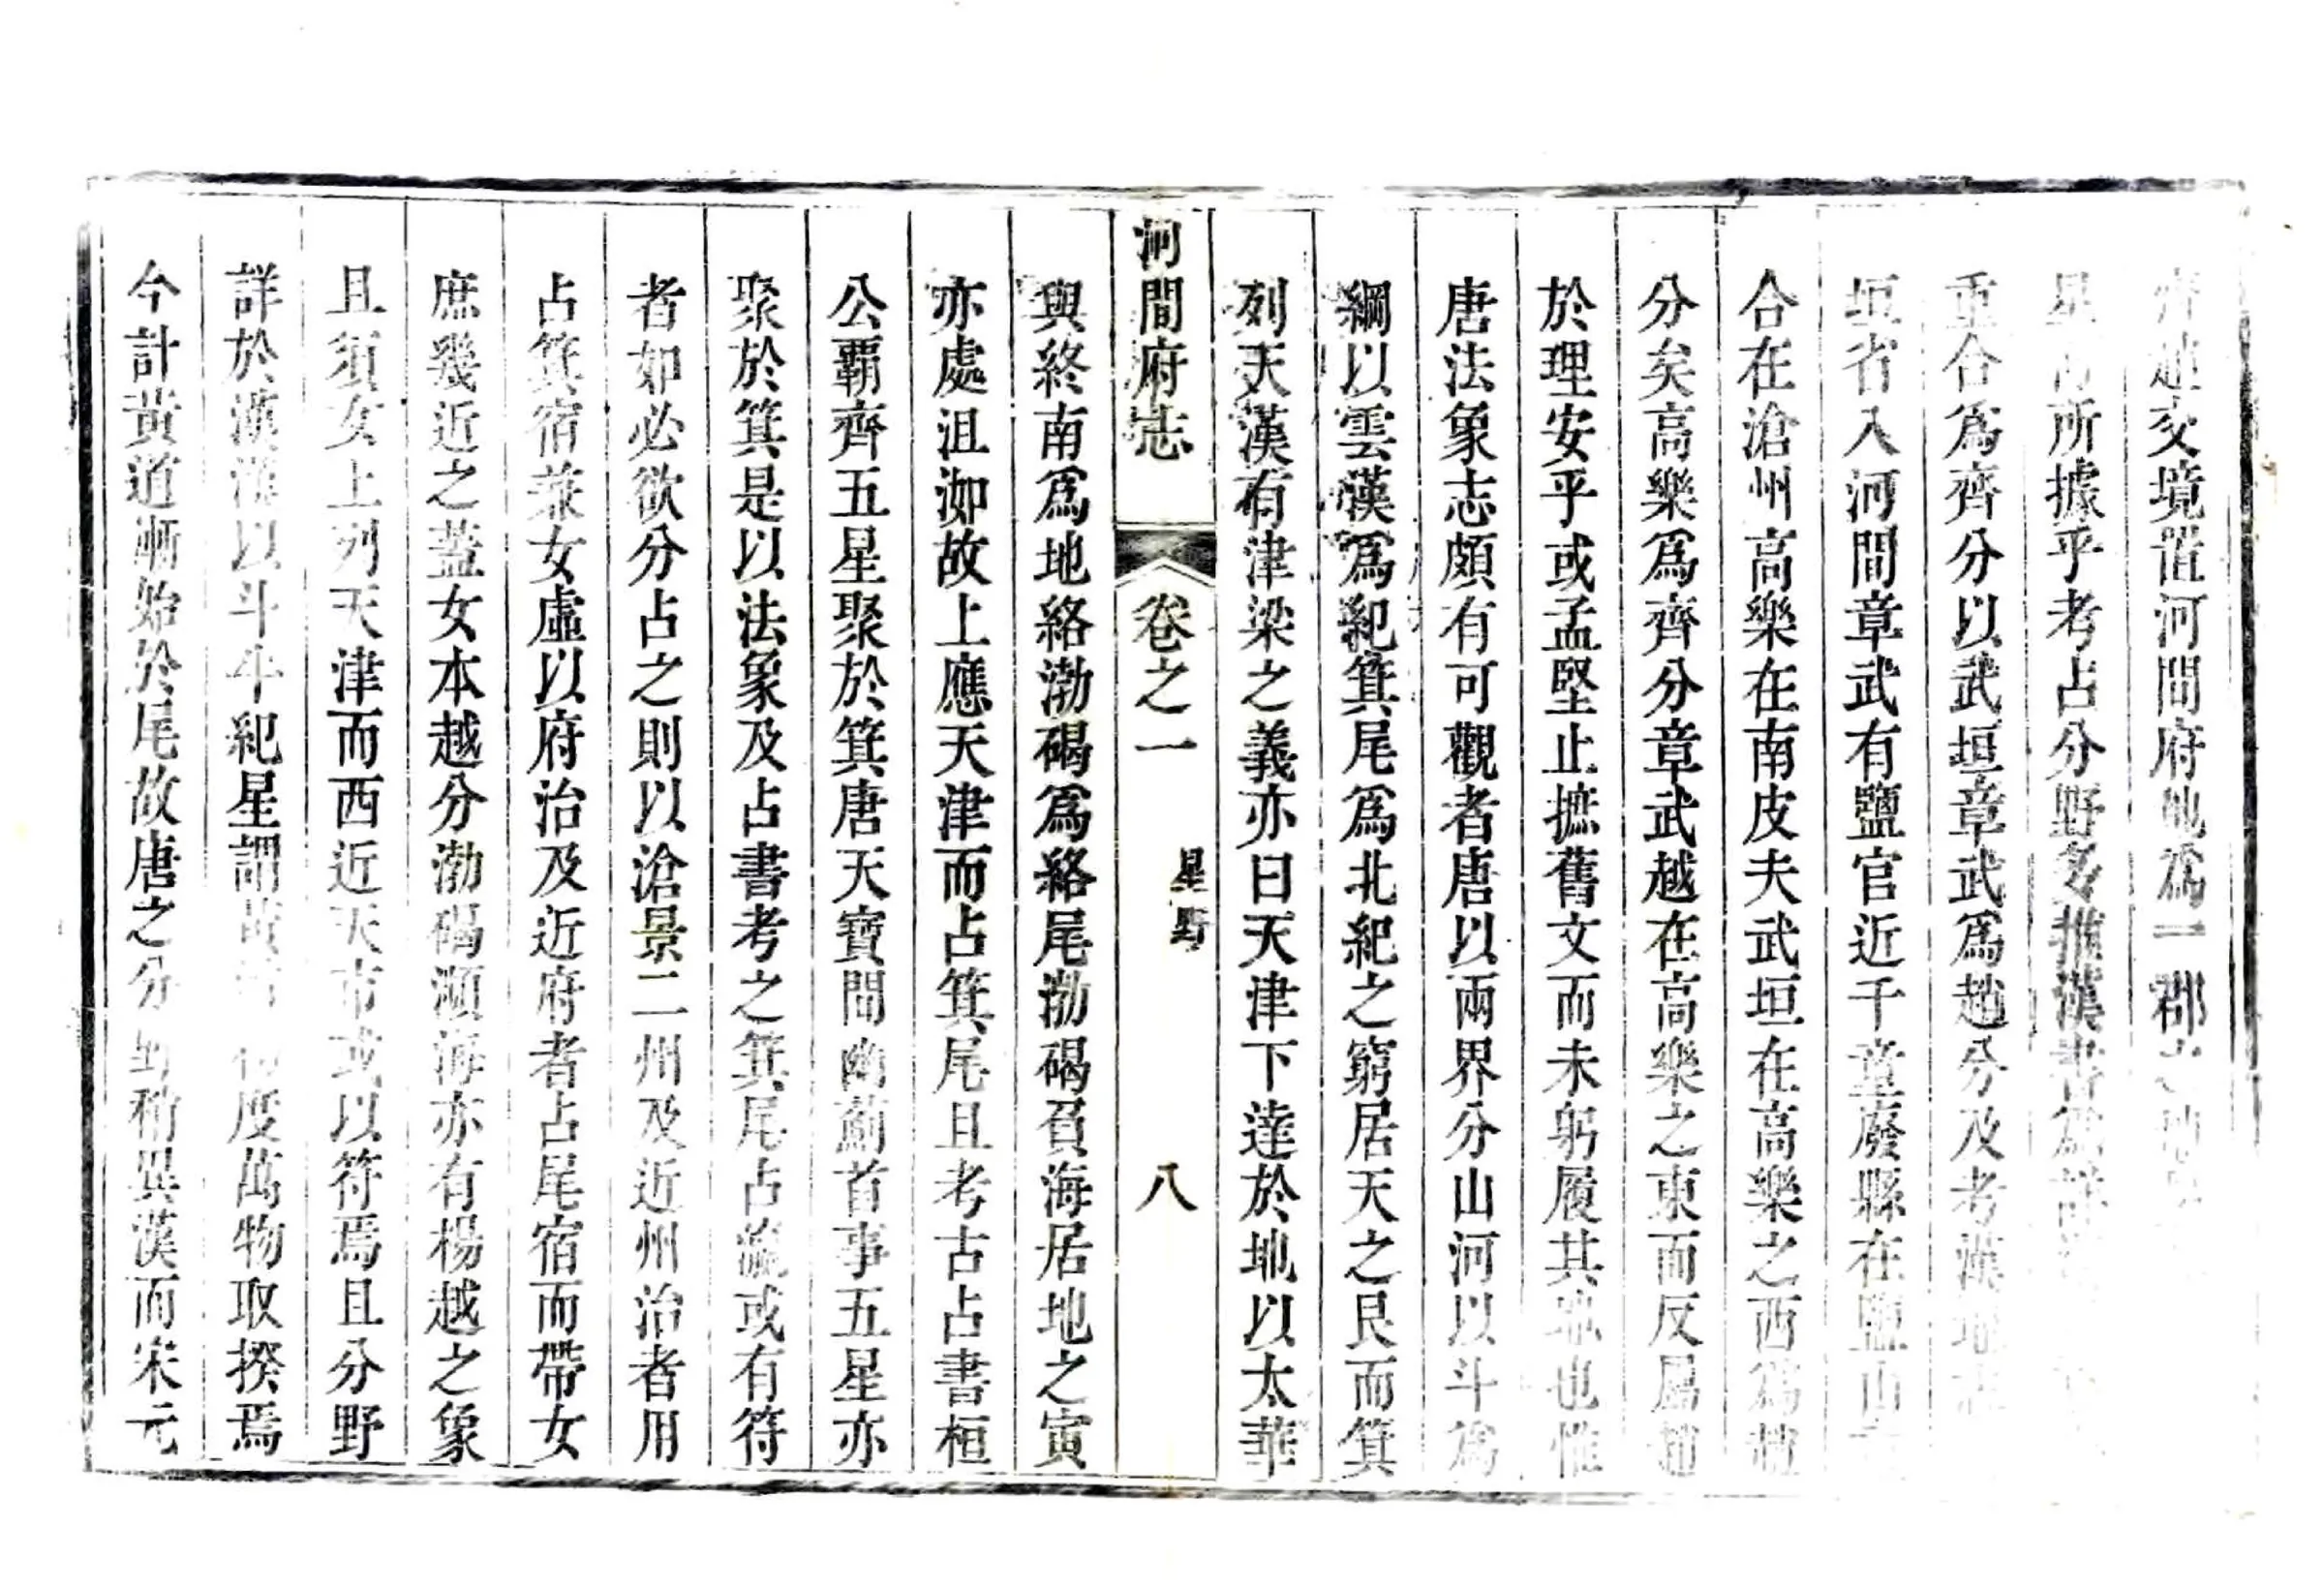 齊趙交境置河間府地爲一郡之地
星所據乎考占分野多推漢書爲詳
重合爲齊分以武垣章武爲趙分及考漢地
垣省入河間章武有鹽官近千童廢縣在鹽山
合在滄州高樂在南皮夫武垣在高樂之西爲趙
分矣高樂爲齊分章武越在高樂之東而反屬趙
於理安乎或孟堅止摭舊文而未躬履其地也惟
唐法象志頗有可觀者唐以兩界分山河以斗爲
綱以雲漢爲紀箕尾爲北紀之窮居天之艮而箕
列天漢有津梁之義亦曰天津下達於地以太華
河間府志 卷之一 星野 八
與終南爲地絡渤碣爲絡尾渤碣負海居地之寅
亦處沮洳故上應天津而占箕尾且考古占書桓
公霸齊五星聚於箕唐天寶間幽薊首事五星亦
聚於箕是以法象及占書考之箕尾占瀛或有符
者如必欲分占之則以滄景二州及近州治者用
占箕宿兼女虛以府治及近府者占尾宿而帶女
庶幾近之蓋女本越分渤碣瀕海亦有楊越之象
且須女上列天津而西近天市或以符焉且分野
詳於漢漢以斗牛紀星謂黃度萬物取揆焉
今計黃道漸始於尾故唐之分野稍異漢而宋元